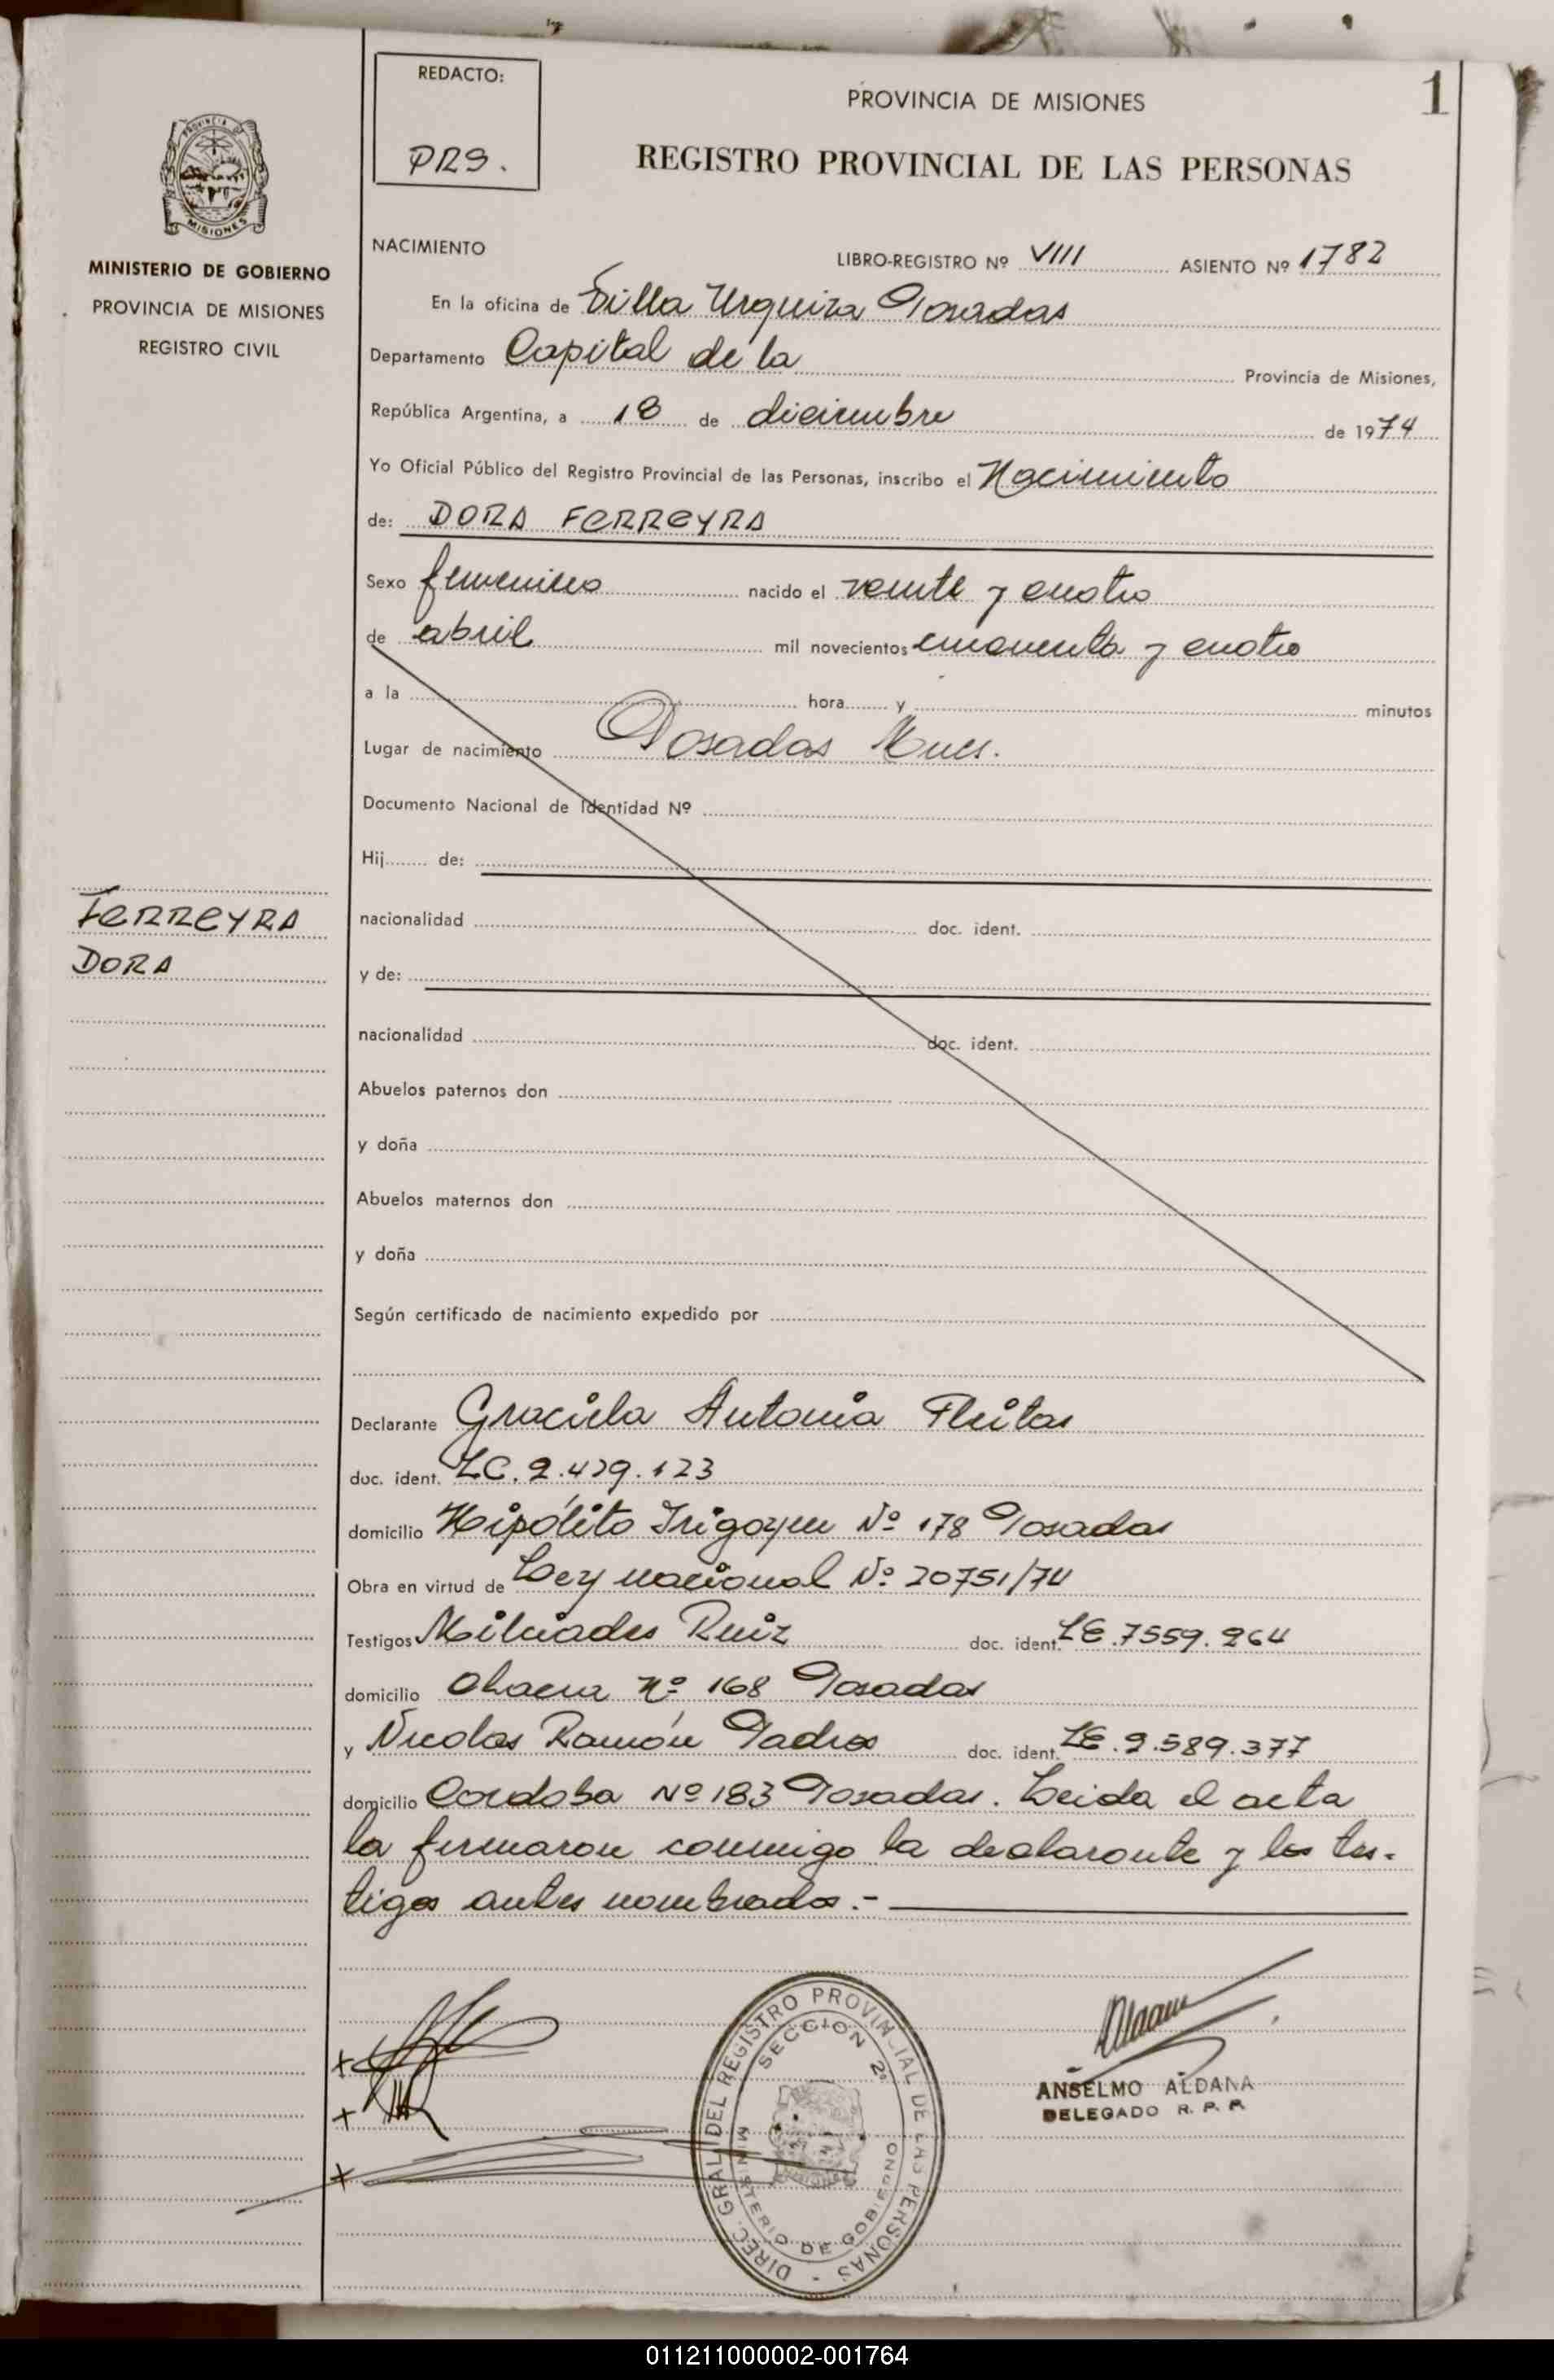 REDACTO:
PRS.
PROVINCIA DE MISIONES
1
REGISTRO PROVINCIAL DE LAS PERSONAS
PROVINCIA DE
MISIONES
MINISTERIO DE GOBIERNO
PROVINCIA DE MISIONES
REGISTRO CIVIL
NACIMIENTO
LIBRO-REGISTRO Nº VIII ASIENTO Nº 1782
En la oficina de Villa Urquiza Posadas
Departamento Capital de la Provincia de Misiones,
República Argentina, a 18 de diciembre de 1974
Yo Oficial Público del Registro Provincial de las Personas, inscribo el Nacimiento
de: DORA FERREYRA
Sexo femenino nacido el veinte y cuatro
de abril mil novecientos cincuenta y cuatro
a la hora y minutos
Lugar de nacimiento Posadas Mnes.
Documento Nacional de Identidad Nº
Hij de:
FERREYRA
DORA
nacionalidad doc. ident.
y de:
nacionalidad doc. ident.
Abuelos paternos don
y doña
Abuelos maternos don
y doña
Según certificado de nacimiento expedido por
Declarante Graciela Antonia Fleitas
doc. ident. LC. 2.429.123
domicilio Hipólito Irigoyen Nº 178 Posadas
Obra en virtud de Ley nacional Nº 20751/74
Testigos Milciades Ruiz doc. ident. LE. 7559.264
domicilio Nº 168 Posadas
y Nicolas Ramón Padros doc. ident. LE. 2.589.377
domicilio Cordoba Nº 183 Posadas. Leida el acta
la firmaron conmigo la declarante y los tes-
tigos antes nombrados.-
DIREC. GRAL. DEL REGISTRO PROVINCIAL DE LAS PERSONAS -
SECCION 2ª
MINISTERIO DE GOBIERNO
ANSELMO ALDANA
DELEGADO R. P. P.
011211000002-001764